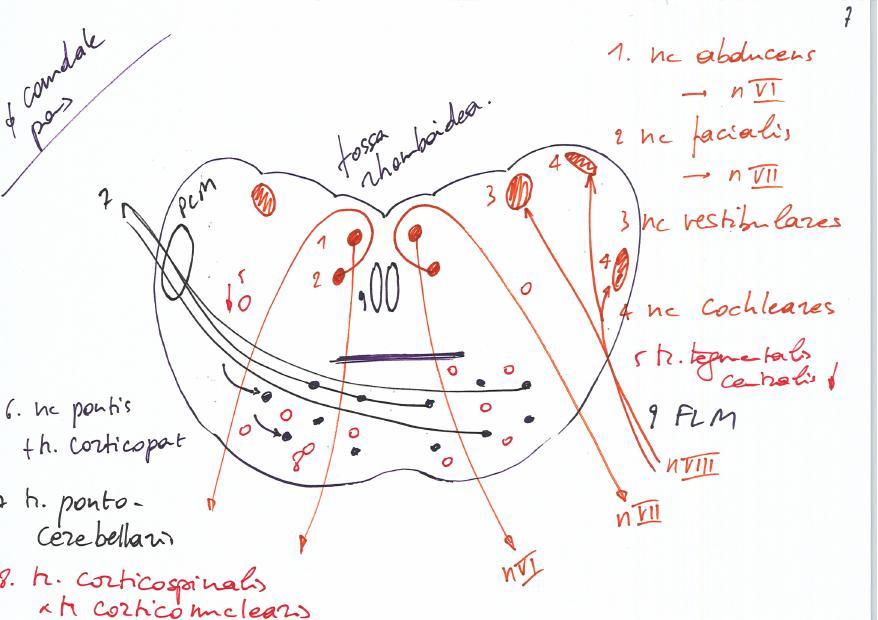 7
↓ caudale
pons
fossa
rhomboidea.
1. nc abducens
→ n VI
2 nc facialis
→ n VII
3 nc vestibulares
4 nc cochleares
5 tr. tegmentalis
centralis ↓
9 FLM
7
PCM
5
1
2
3
4
4
9
8
6. nc pontis
+ tr. corticopont
7 tr. ponto-
cerebellaris
8. tr. corticospinalis
+ tr corticonuclearis
n VI
n VII
n VIII